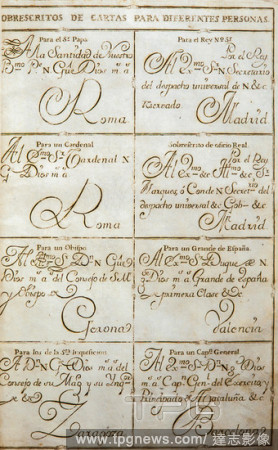 OBRESCRITOS DE CARTAS PARA DIFERENTES PERSONAS.
Para el Sr. Papa
A la Santidad de Nuestro
Bmo. Pe. N Que Dios m a
Roma
Para el Rey N. Sr.
Por el Rey
Al Exmo. Sr. N Secretario
del despacho universal de N &c
Madrid
Para un Cardenal
Al Sr. Cardenal N
Dios m a
Roma
Sobrescrito de oficio Real.
Por el Rey
Al Exmo.
Marques, o Conde N
despacho universal &c
Madrid
Para un Obispo
Al Sr. Dn. N Gue
Dios ms. as. del Consejo de S. M
y Obispo &c
Gerona
Para un Grande de España.
Al Exmo. Sr. Duque de N
Dios m a Grande de España
y primera Clase &c
Valencia
Para los de la Sta. Inquisicion
A Dn. N Dios m as. del
Consejo de su Mag. y su
Zaragoza
Para un Capn. General
Al Exmo. Sr. Dn. N Dios
m a Capn. Gen. del Exercito y
Principado de Cataluña &c
Barcelona
TPG
www.tpgnews.com/達志影像